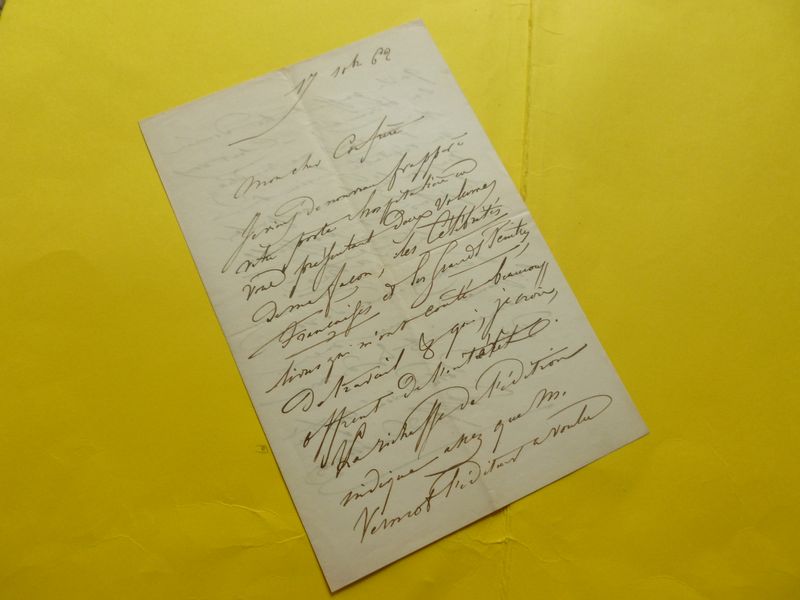 17 8bre 62
Mon cher Confrère
Je viens de nouveau frapper à
votre porte hospitalière en
vous présentant deux volumes
de ma façon, les Célébrités
Françaises et les Grands Peintres,
livres qui m'ont couté beaucoup
de travail & qui, je crois,
offrent de l'intérêt.
La richesse de l'édition
indique assez que M.
Vermot l'éditeur a voulu